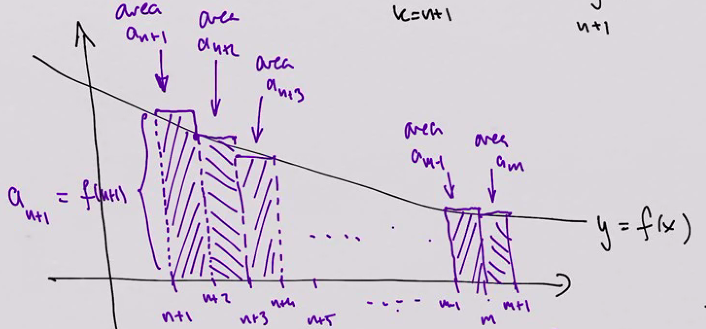 k=n+1
n+1
area
a_{n+1}
area
a_{n+2}
area
a_{n+3}
area
a_{m-1}
area
a_m
a_{n+1} = f(n+1)
y = f(x)
.....
....
n+1
n+2
n+3
n+4
n+5
m-1
m
m+1